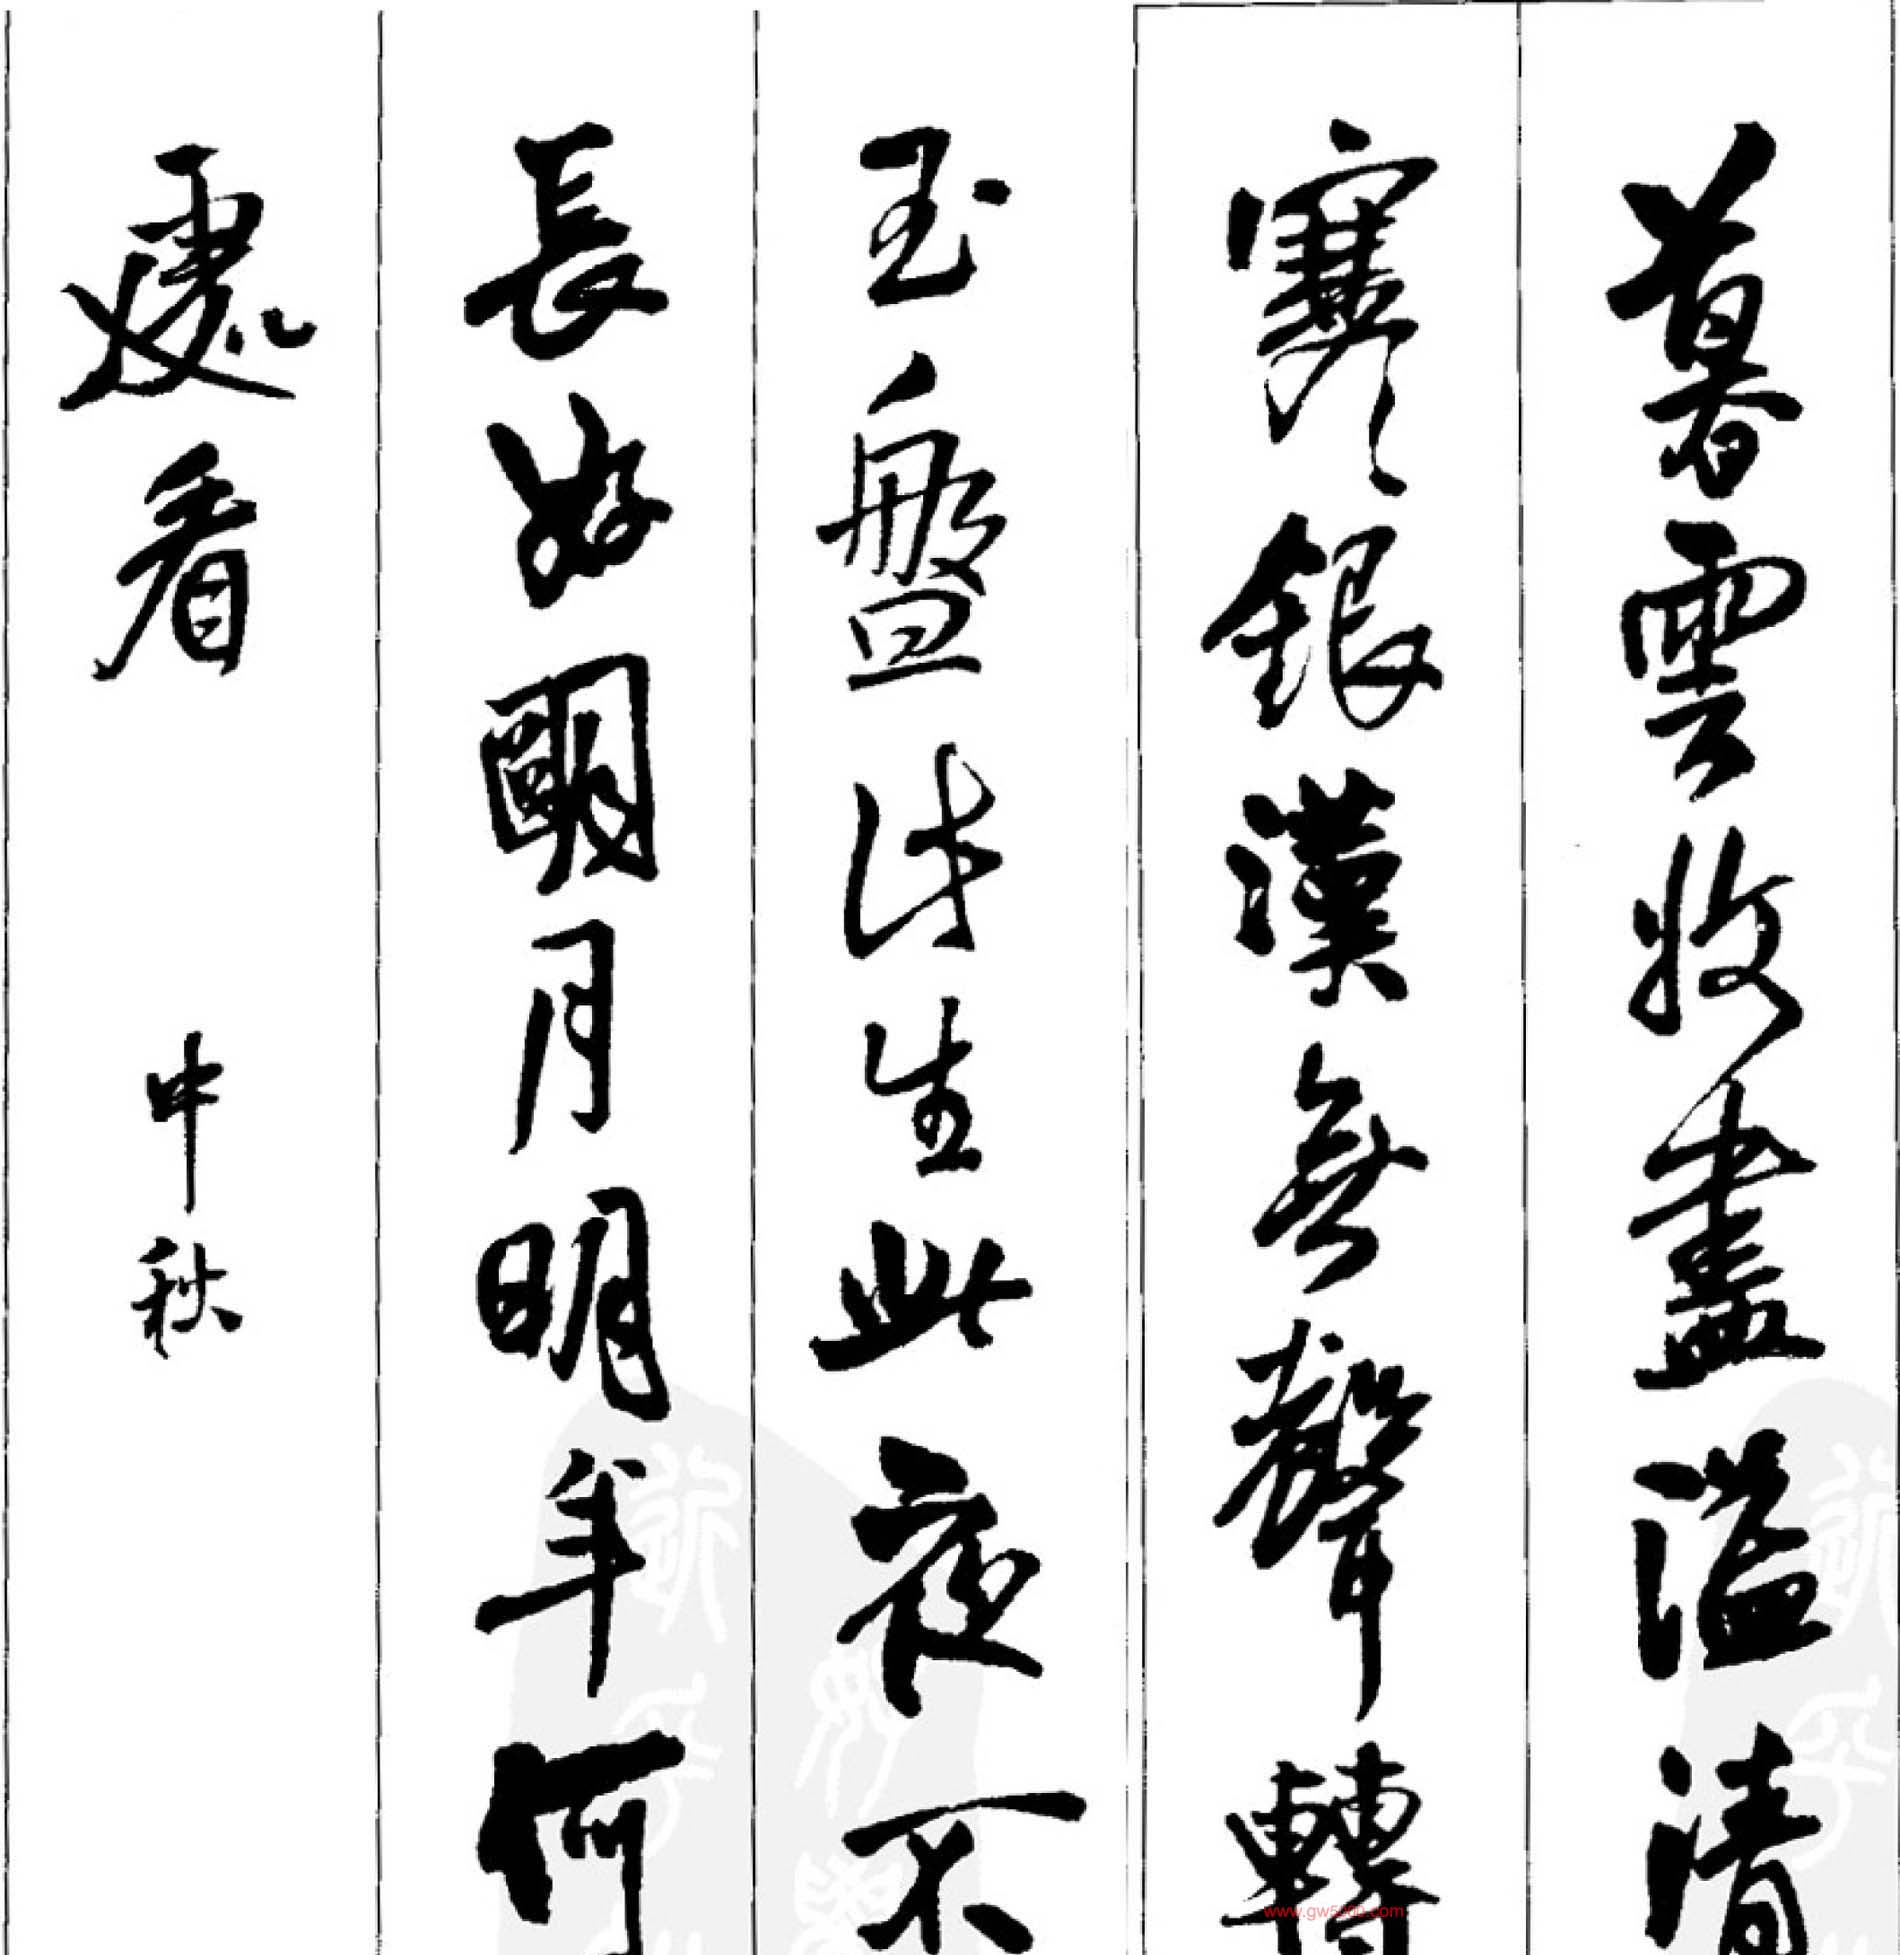 暮雲收盡溢清
寒銀漢無聲轉
玉盤此生此夜不
長好明月明年何
處看
中秋
www.gw5000.com